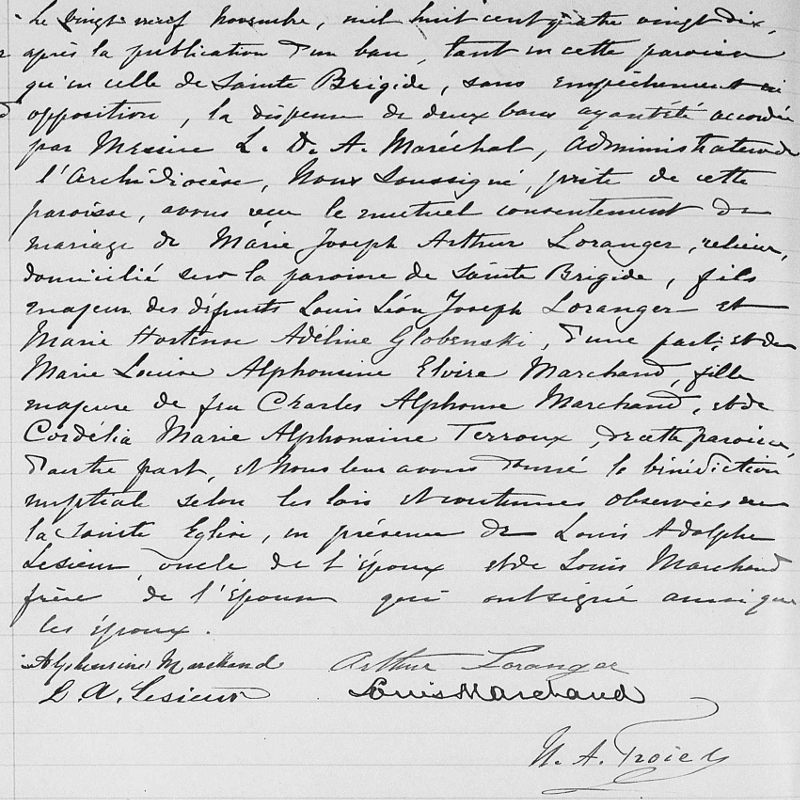 Le vingt neuf Novembre, mil huit cent quatre vingt dix,
après la publication d'un ban, tant en cette paroisse
qu'en celle de Sainte Brigide, sans empêchement ni
opposition, la dispense de deux bans ayant été accordée
par Messire L. D. A. Maréchal, Administrateur de
l'Archidiocèse, Nous soussigné, prêtre de cette
paroisse, avons reçu le mutuel consentement de
mariage de Marie Joseph Arthur Loranger, relieur,
domicilié sur la paroisse de Sainte Brigide, fils
majeur des défunts Louis Léon Joseph Loranger et
Marie Hortense Adéline Globenski, d'une part, et de
Marie Louise Alphonsine Elvire Marchand, fille
majeure de feu Charles Alphonse Marchand, et de
Cordélia Marie Alphonsine Terroux, de cette paroisse,
d'autre part, et Nous leur avons donné la bénédiction
nuptiale selon les lois et coutumes observées en
la Sainte Eglise, en présence de Louis Adolphe
Lesieur, oncle de l'époux et de Louis Marchand
frère de l'épouse qui ont signé ainsi que
les époux.
Alphonsine Marchand Arthur Loranger
L. A. Lesieur Louis Marchand
N. A. Troie